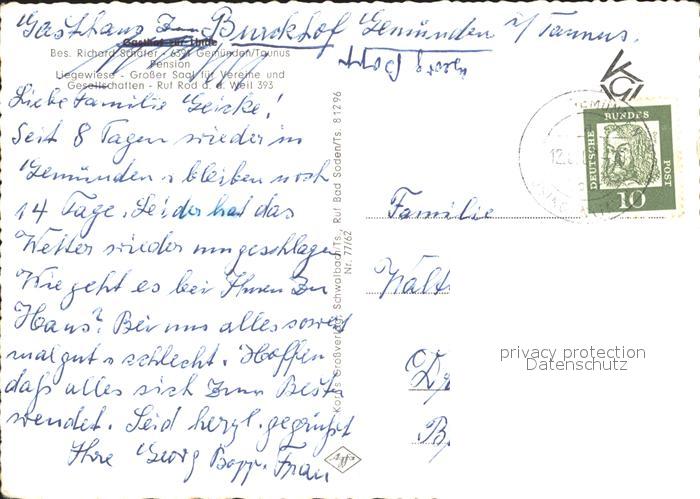 Gasthaus zum Burckhof Gemünden i/Taunus.
Gasthof zur Linde
Bes. Richard Schäfer - 6391 Gemünden/Taunus
Pension
Liegewiese - Großer Saal für Vereine und
Gesellschaften - Ruf Rod a. d. Weil 393
Georg Bopp
Liebe Familie Geicke!
Seit 8 Tagen wieder in
Gemünden u bleiben noch
14 Tage. Leider hat das
Wetter wieder umgeschlagen
Wie geht es bei Ihnen zu
Haus? Bei uns alles soweit
mal gut u schlecht. Hoffen
daß alles sich zum Besten
wendet. Seid herzl. gegrüßt
Ihre Georg Bopp u. Frau
Nr. 77/62
Großverlag Schwalbach/Ts., Ruf Bad Soden/Ts. 81296
Agfa
DEUTSCHE
BUNDES
POST
10
Familie
Walt
D
B
privacy protection
Datenschutz